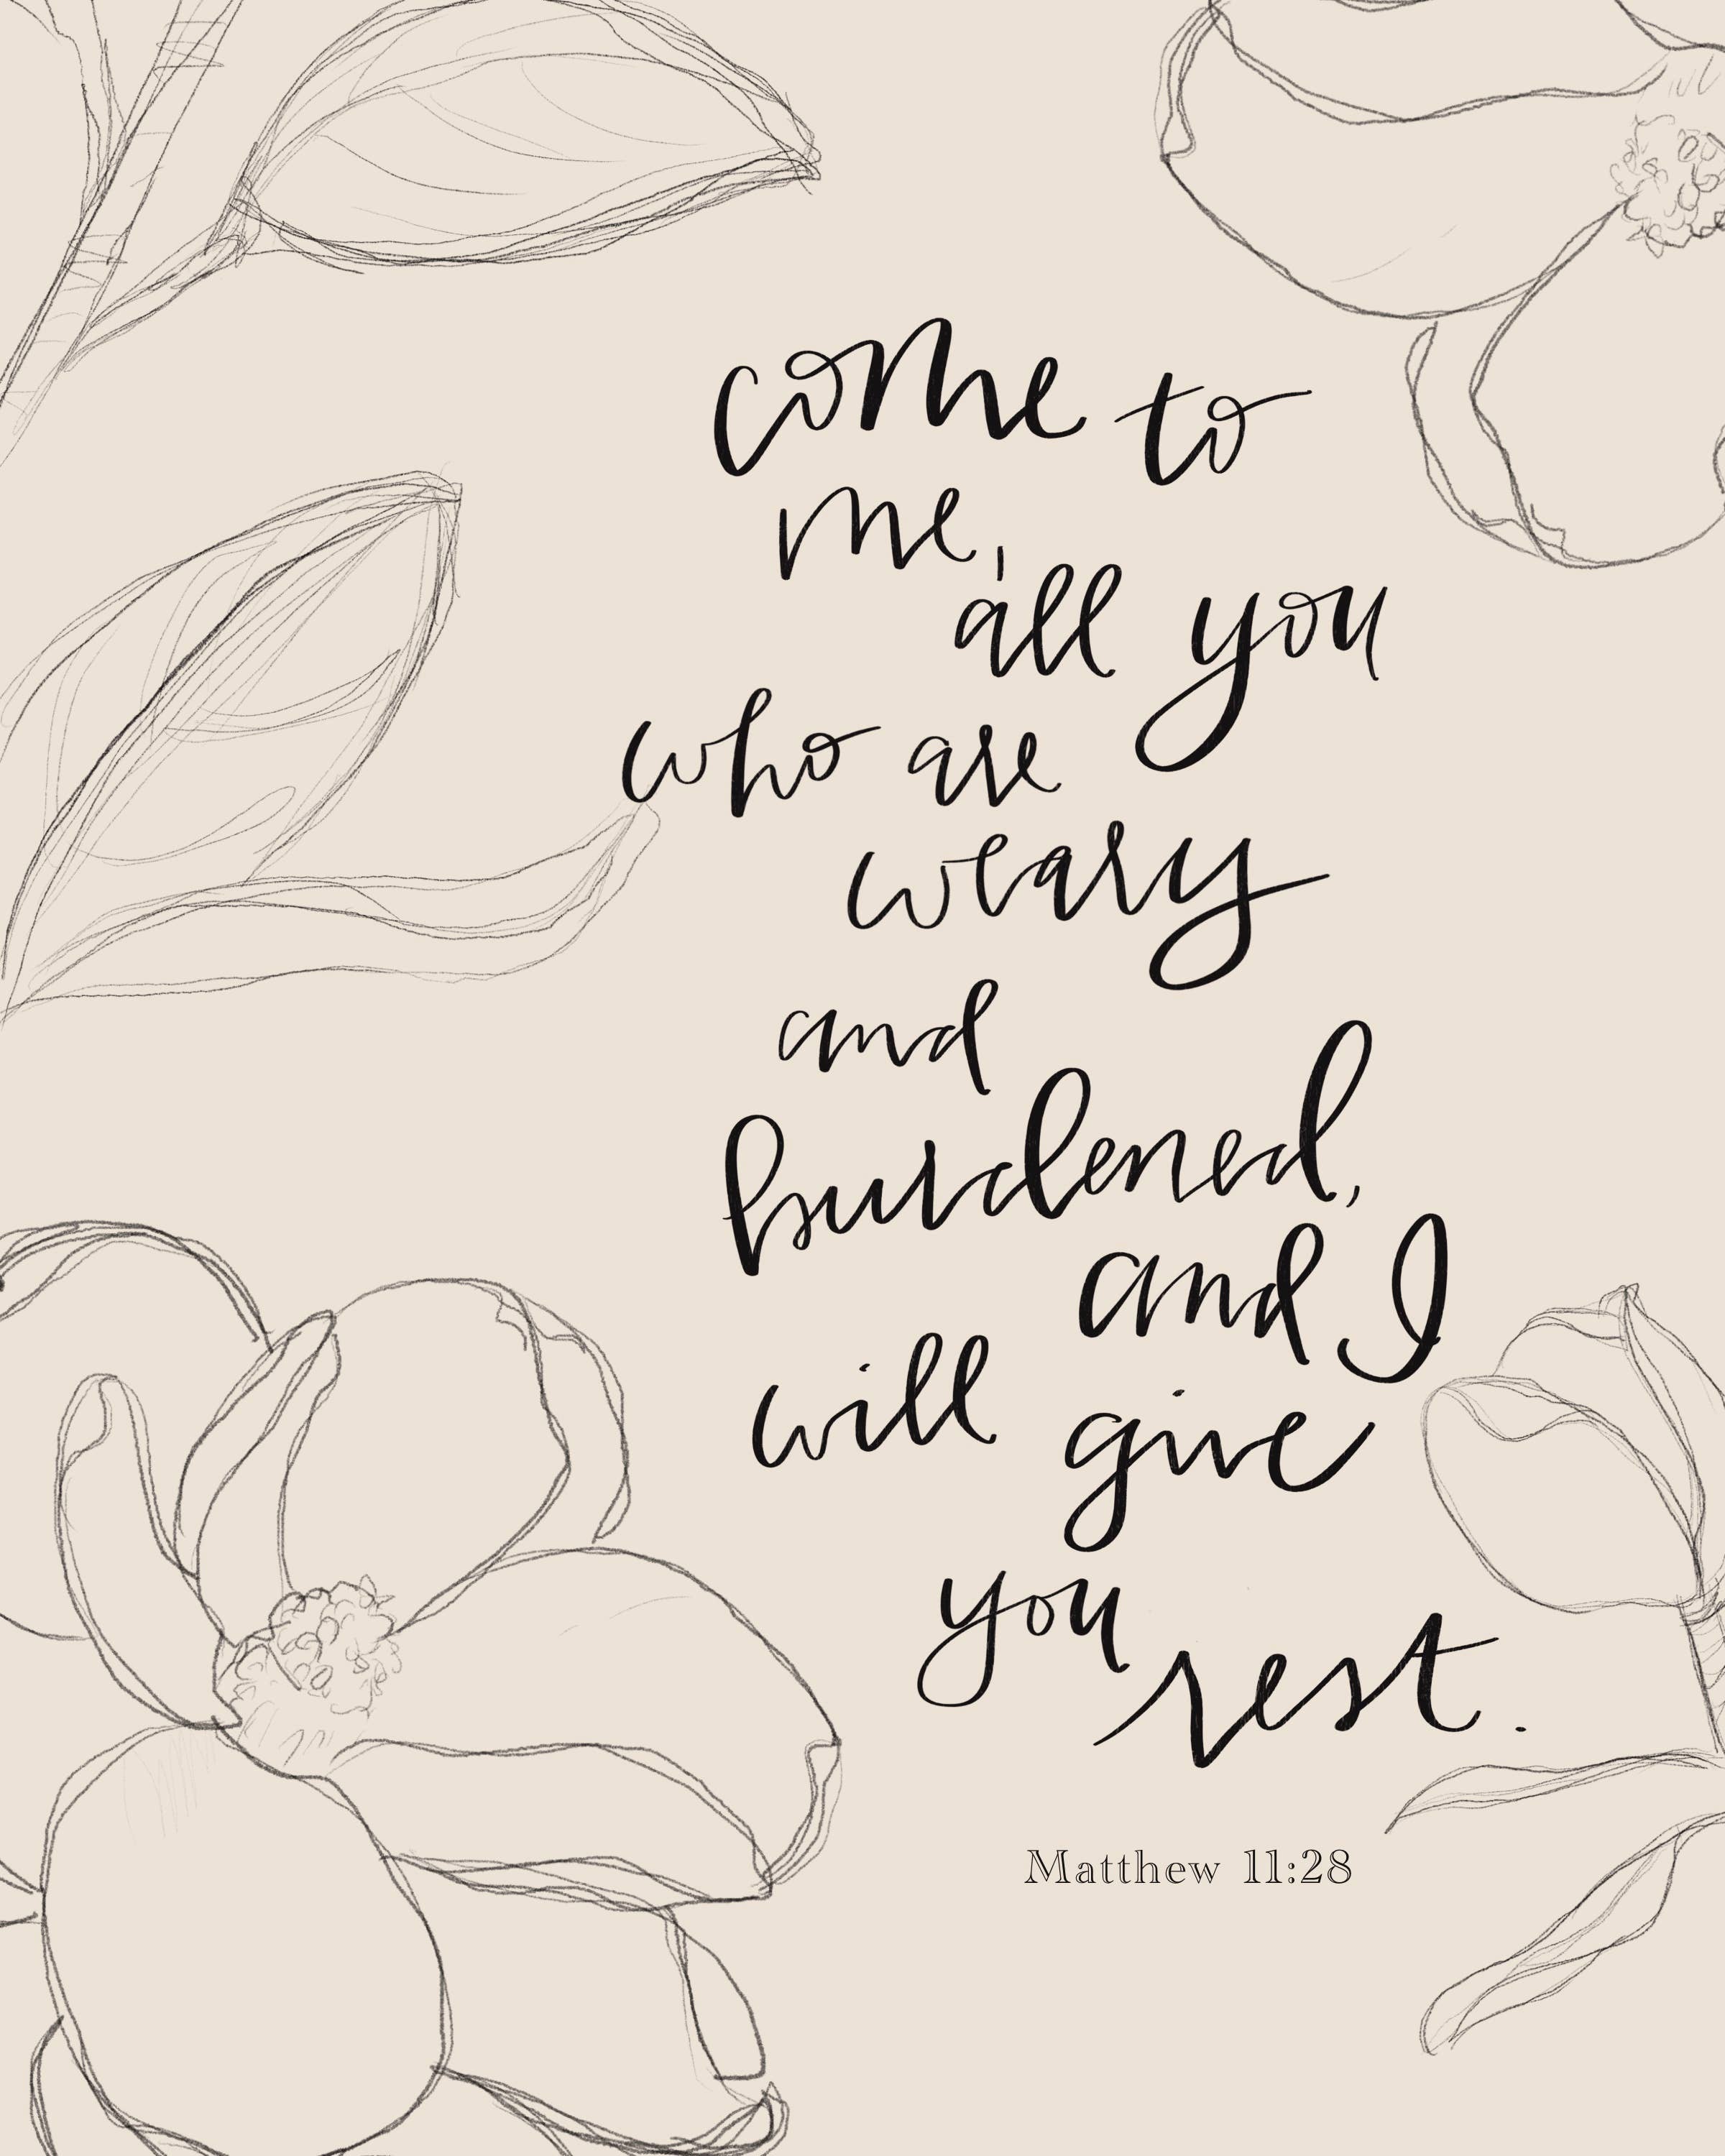 come to
me,
all you
who are
weary
and
burdened,
and I
will give
you
rest.
Matthew 11:28